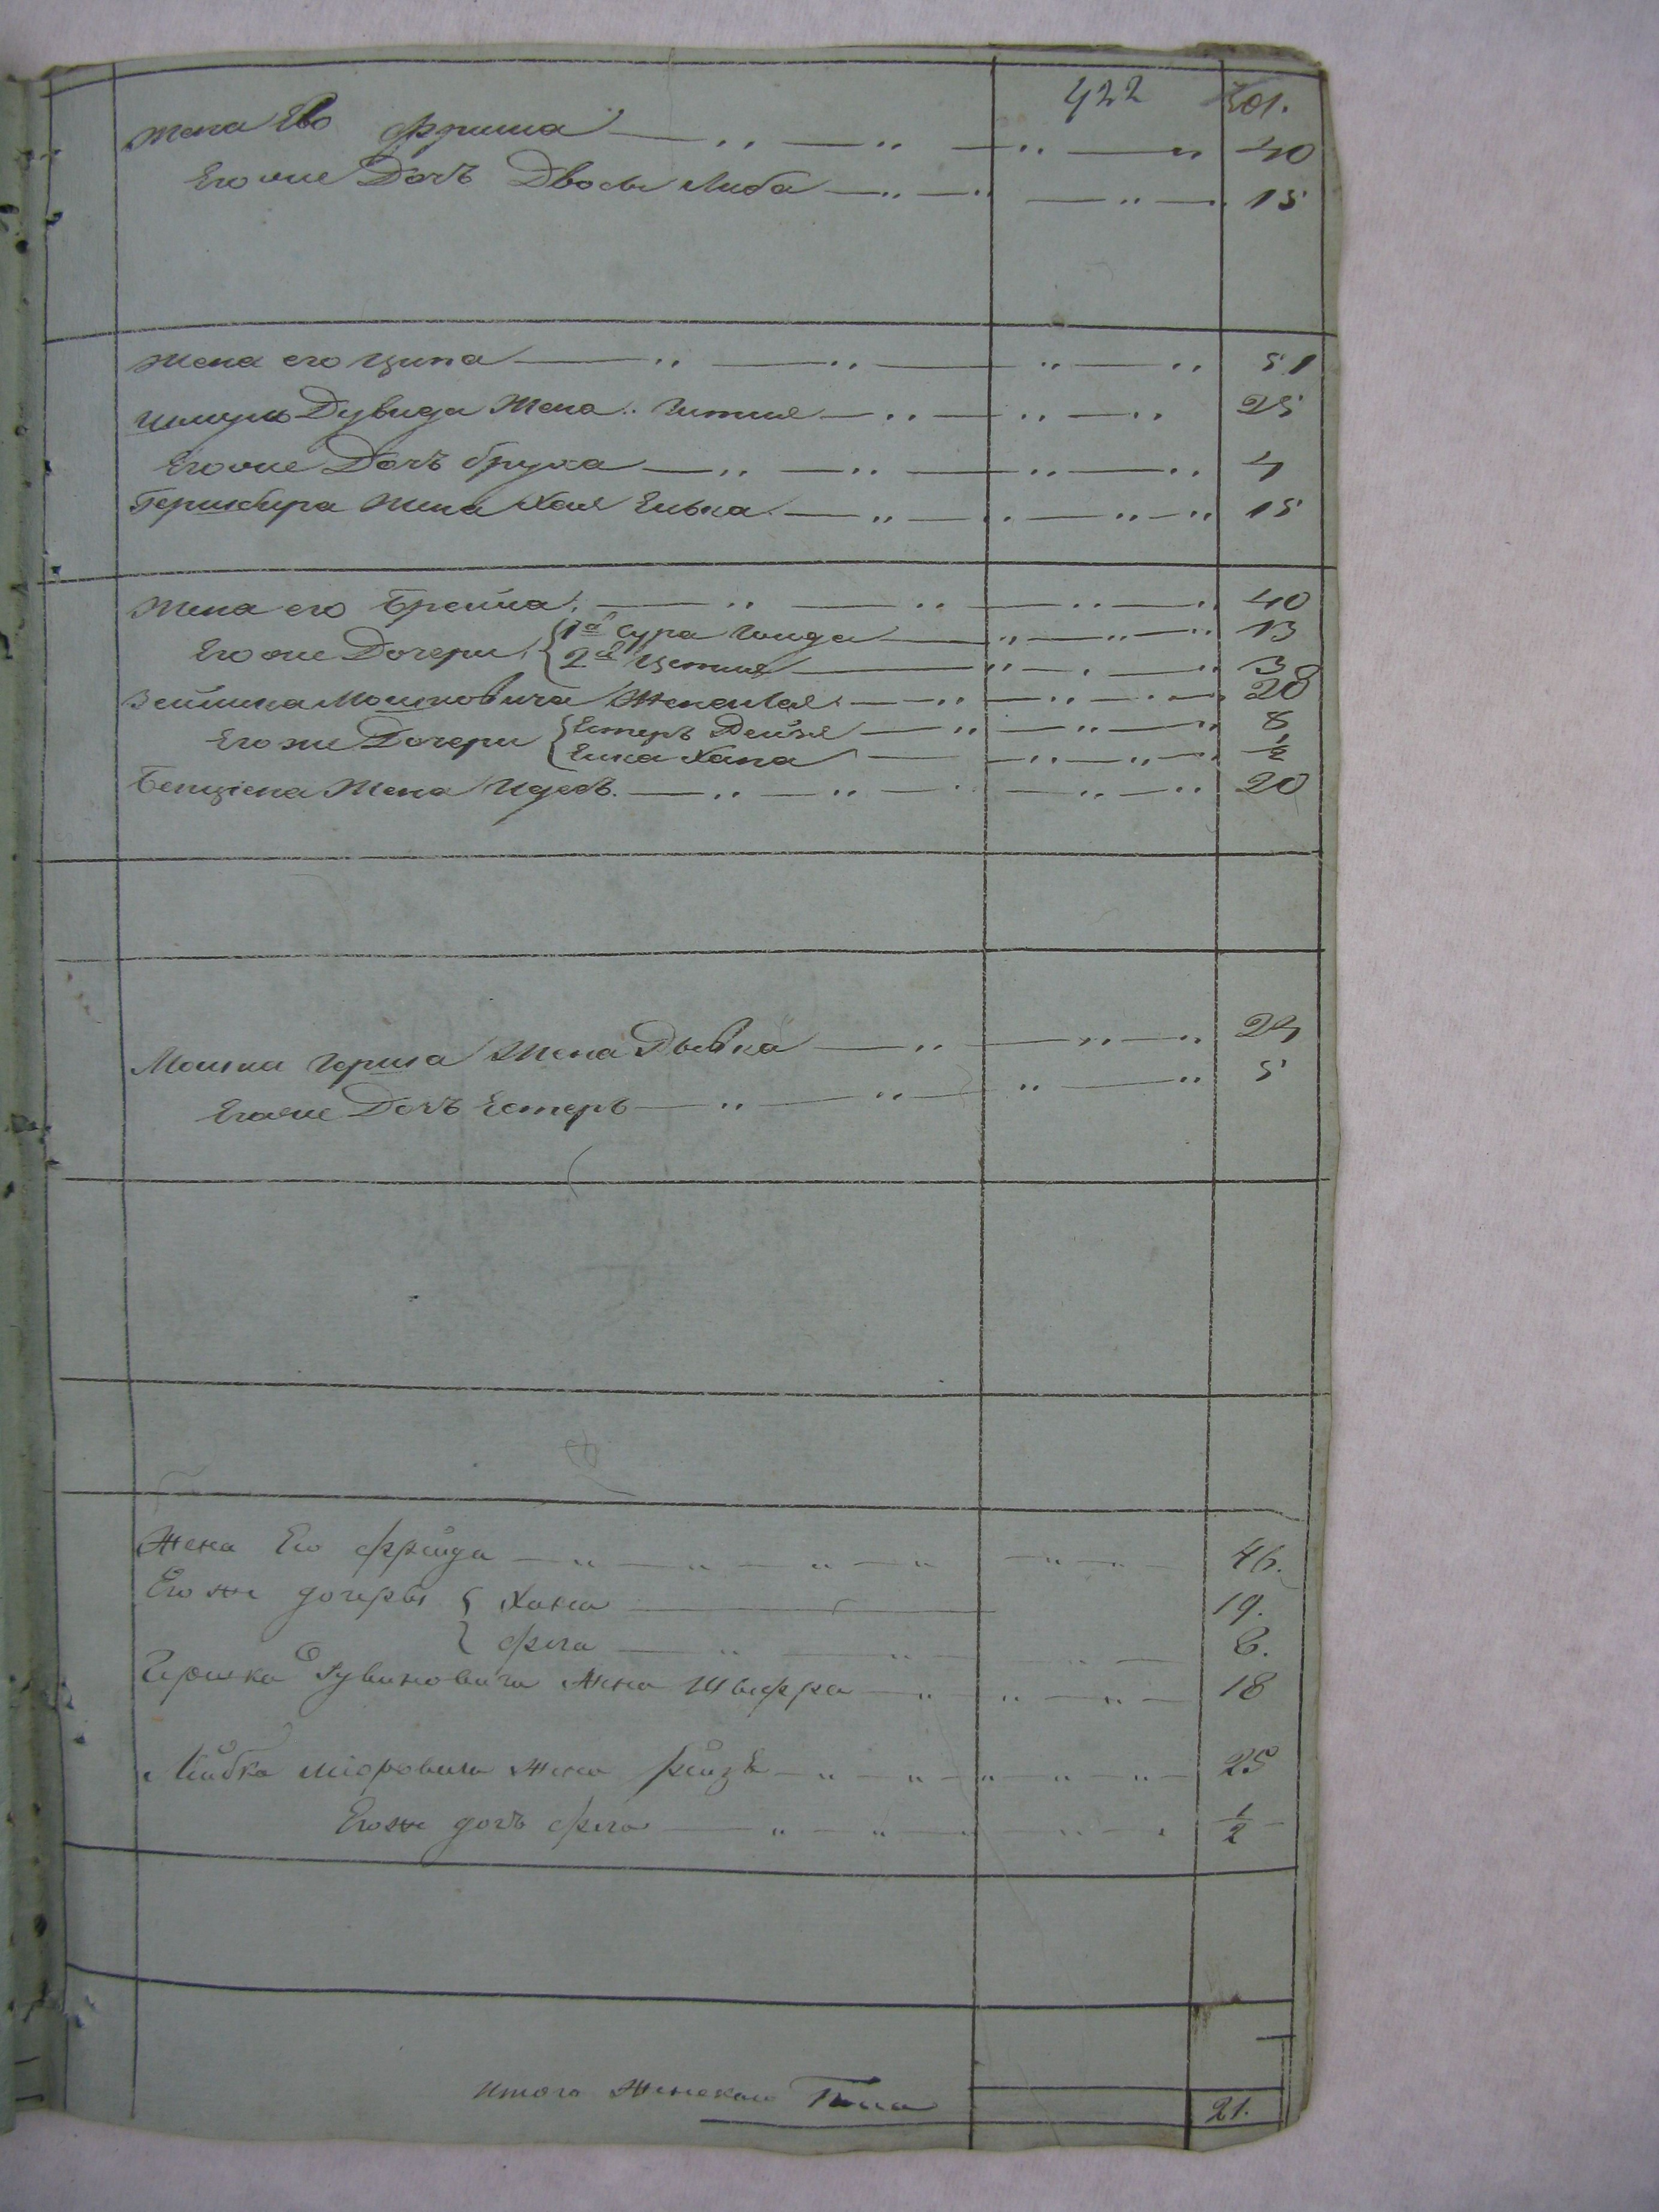 422 501.
Жена Его Фрима 40
Его же Дочъ Двося Либа 15
Жена его Ципа 51
Шмуль Дувида Жена Гитля 25
Его же Дочъ Бруха 4
Гершбера Жена Хая Елька 15
Жена его Брейна 40
Его же Дочери 1я Сура Гинда 13
2я Цетля 3
Зейлика Мошковича Жена Лая 20
Его же Дочери Естеръ Дейзя 8
Ента Хана 1/2
Бенциена Жена Идесъ 20
Мошки Герша Жена Двейра 24
Его же Дочъ Естеръ 5
Жена Его Фрейда 46.
Его же дочеры Хана 19.
Фега 8.
Гершка Рувиновича Жена Шифра 18
Лейбка Жена Рейзя 25
Его же дочъ Фега 1/2
Итого Женскаго Пола 21.